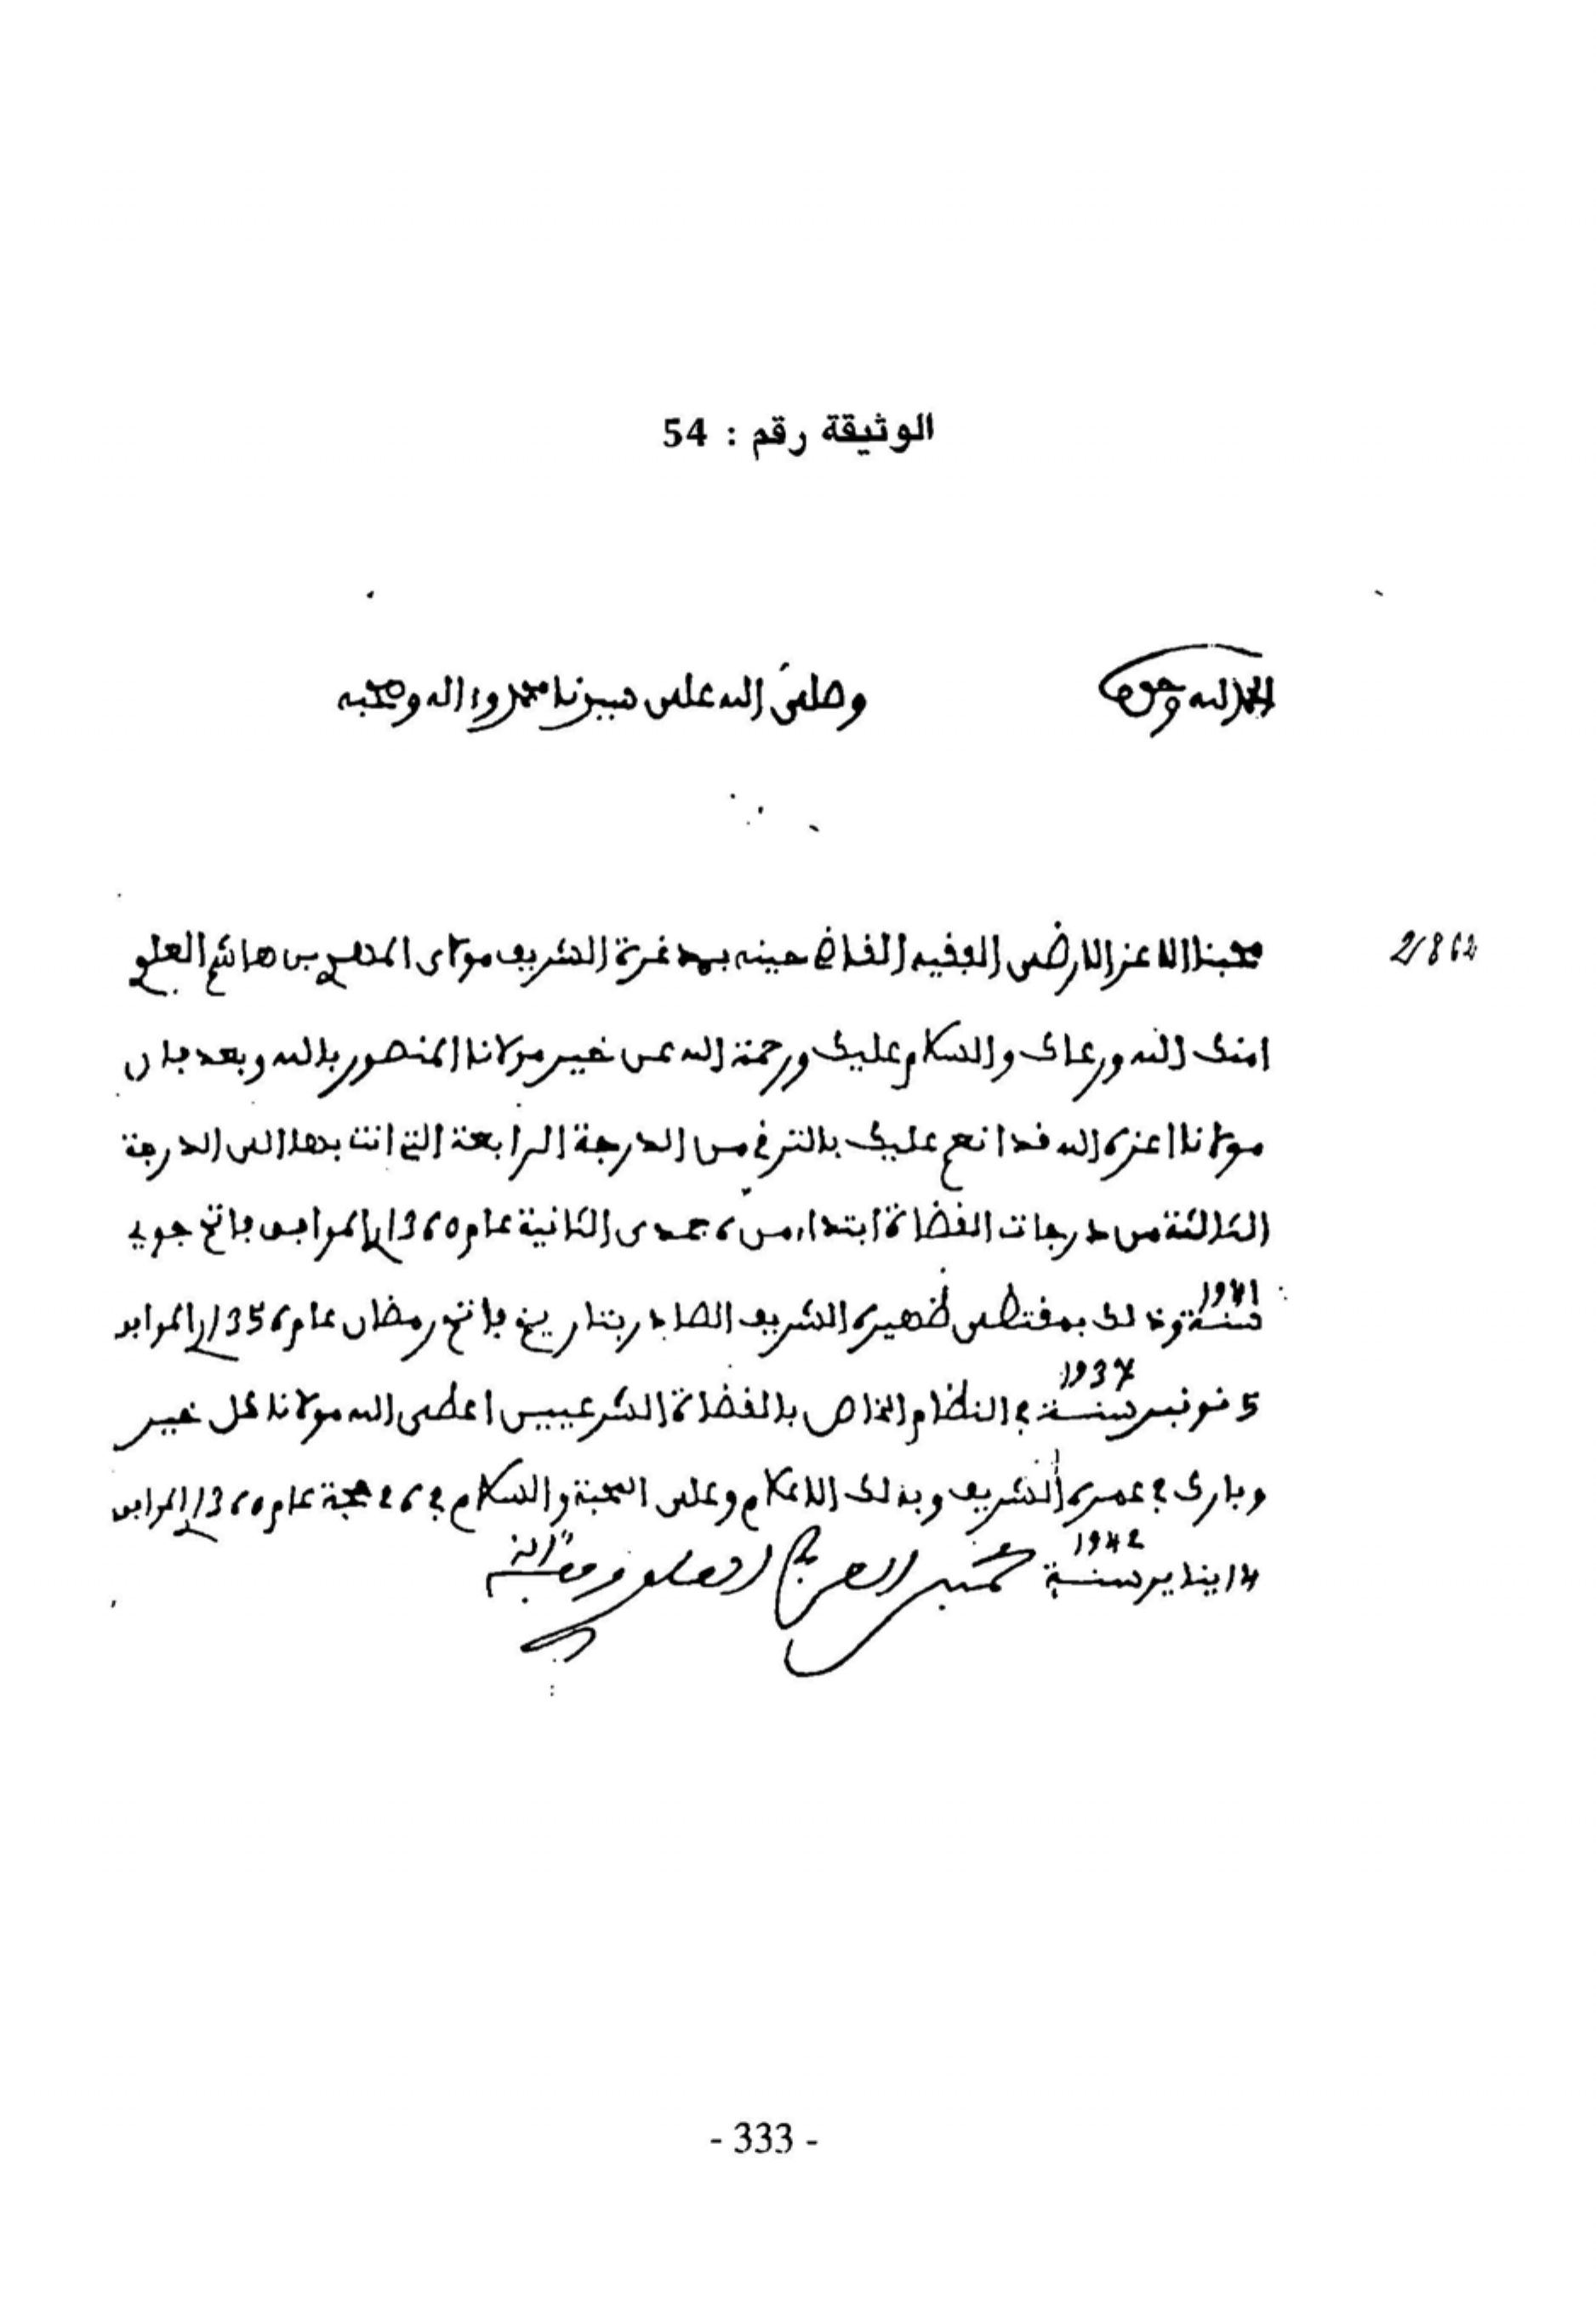 الوثيقة رقم : 54
الحمد لله وحده
وصلى الله على سيدنا محمد وءاله وصحبه
21862
محبنا الاعز الارضى الفقيه القاضي حينه بمدغرة الشريف مولاى المدني بن هاشم العلوي
امنك الله ورعاك والسلام عليك ورحمة الله عن خير مولانا المنصور بالله وبعد فان
مولانا اعزه الله قد انعم عليك بالترقي من الدرجة الرابعة التي انت بها الى الدرجة
الثالثة من درجات القضاة ابتداء من 6 جمدى الثانية عام 1360 الموافق فاتح جويي
سنة 1941 وذلك بمقتضى ظهيره الشريف الصادر بتاريخ فاتح رمضان عام 1356 الموافق
5 نونبر سنة 1937 في النظام الخاص بالقضاة الشرعيين اعطى الله مولانا كل خير
وبارك في عمره الشريف وبذلك الاعلام وعلى المحبة والسلام في 26 حجة عام 1360 الموافق
14 يناير سنة 1942 محمد بن العربي العلوي وفقه الله
- 333 -